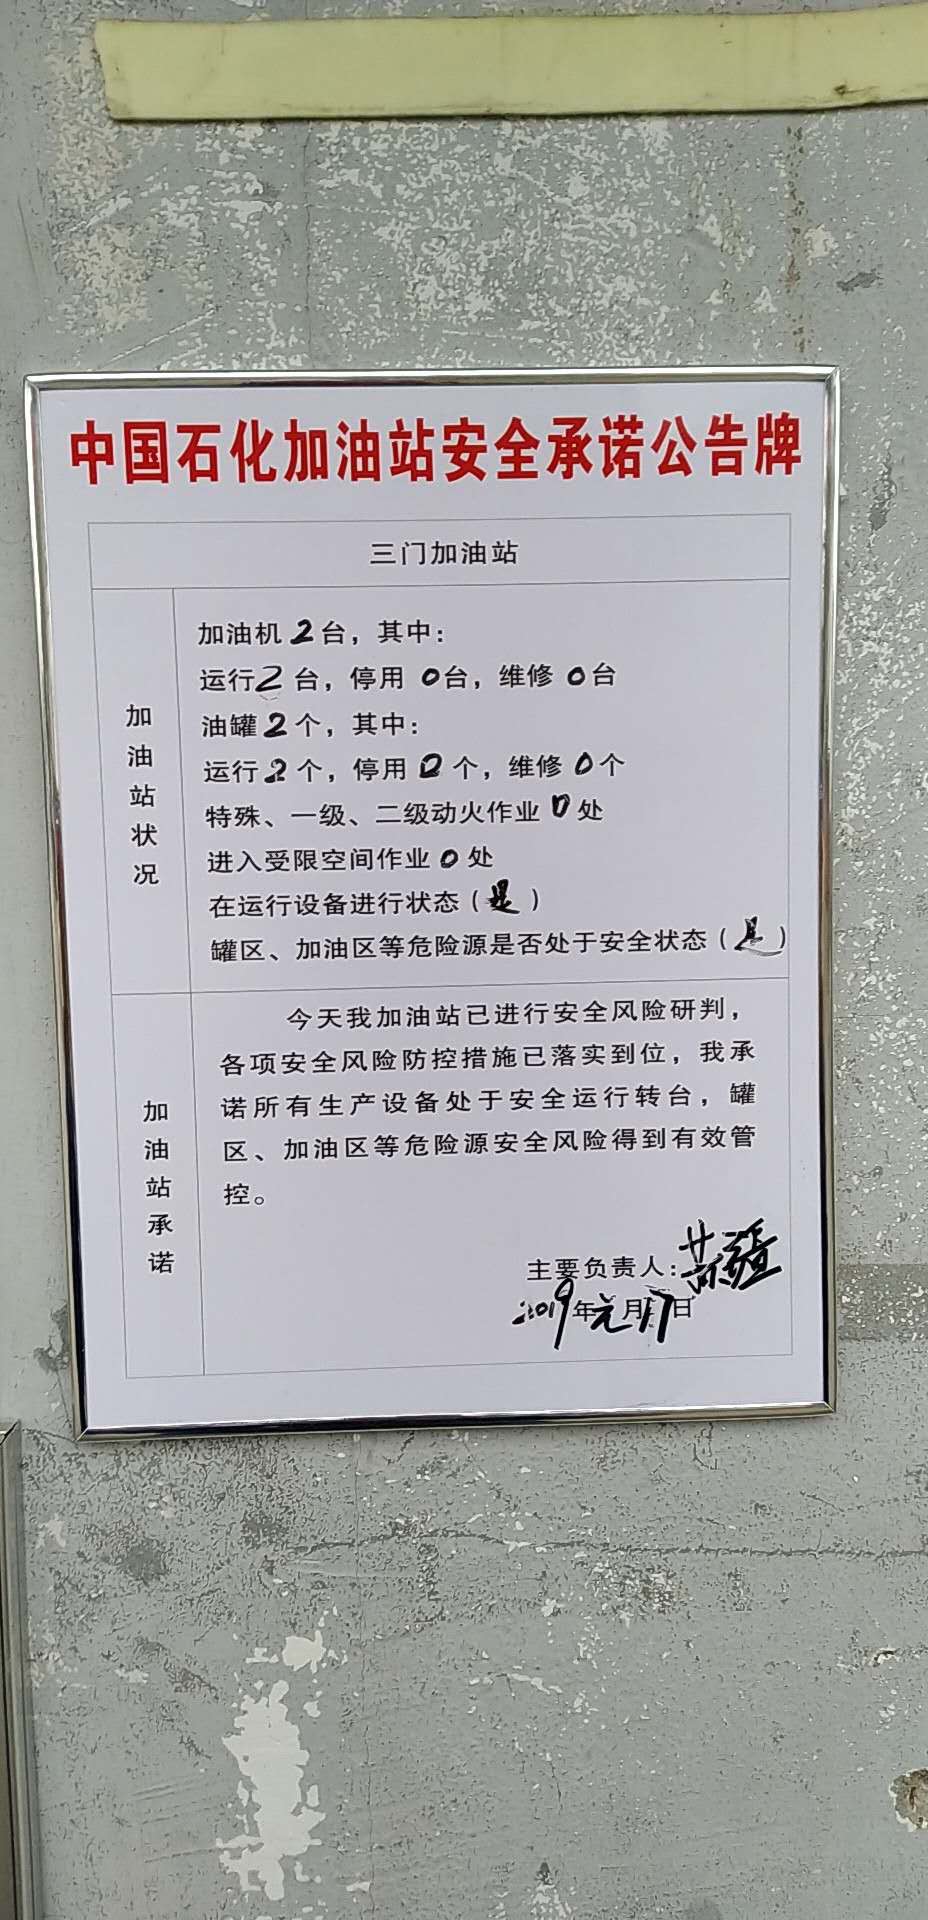 中国石化加油站安全承诺公告牌
三门加油站
加油站状况
加油机2台，其中：
运行2台，停用0台，维修0台
油罐2个，其中：
运行2个，停用0个，维修0个
特殊、一级、二级动火作业0处
进入受限空间作业0处
在运行设备进行状态（是）
罐区、加油区等危险源是否处于安全状态（是）
加油站承诺
今天我加油站已进行安全风险研判，
各项安全风险防控措施已落实到位，我承
诺所有生产设备处于安全运行转台，罐
区、加油区等危险源安全风险得到有效管
控。
主要负责人：
2019年元月17日